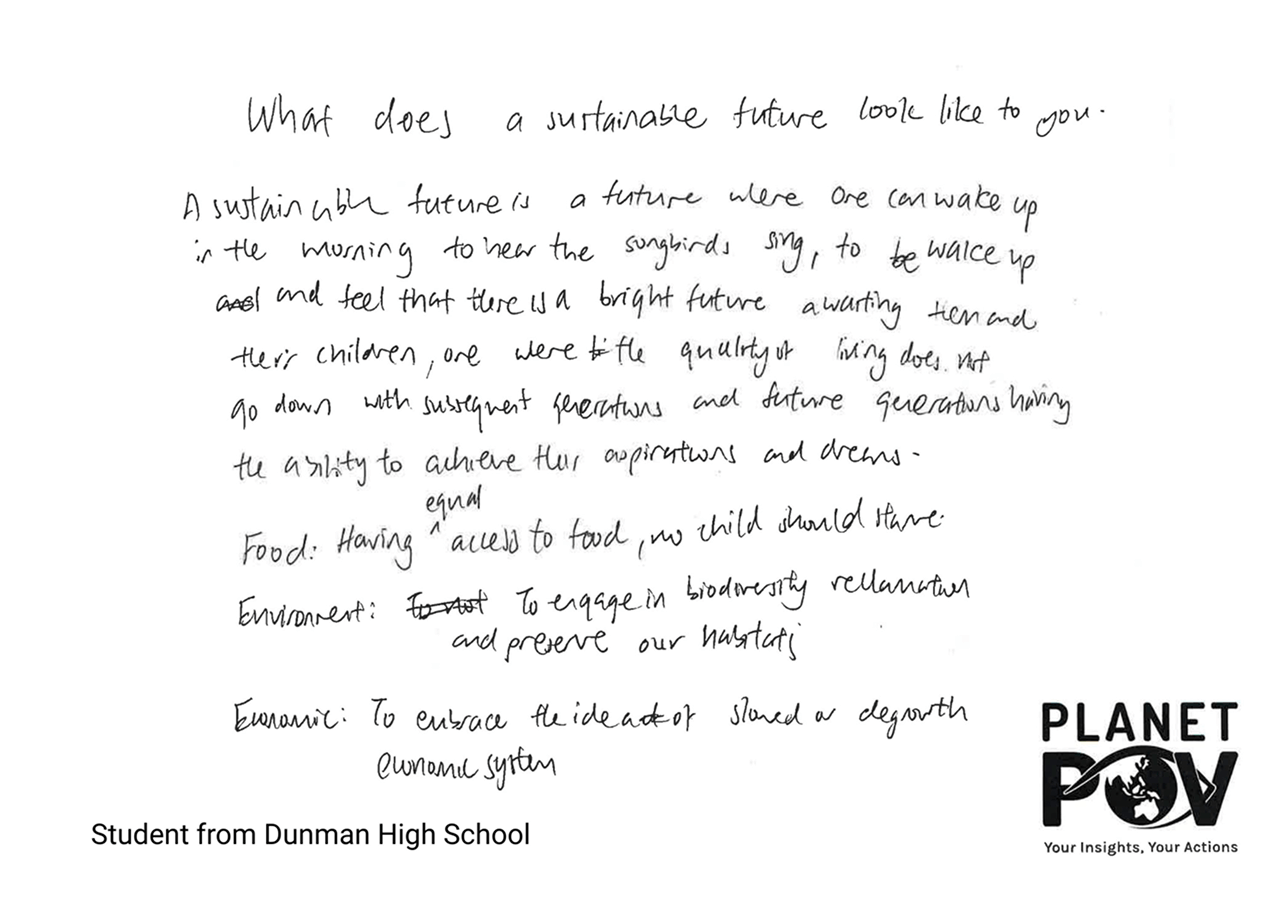 What does a sustainable future look like to you.
A sustainable future is a future were one can wake up
in the morning to hear the songbirds sing, to be walce up
and and feel that there is a bright future awaiting them and
their children, one were the quality of living does not
go down with subsequent generations and future generations having
the ability to achieve their aspirations and dreams.
equal
Food: Having ^ access to food, no child should starve.
Environment: To not To engage in biodiversity reclamation
and preserve our habitats
Economic: To embrace the idea of slowed or degrowth
economic system
PLANET
POV
Your Insights, Your Actions
Student from Dunman High School